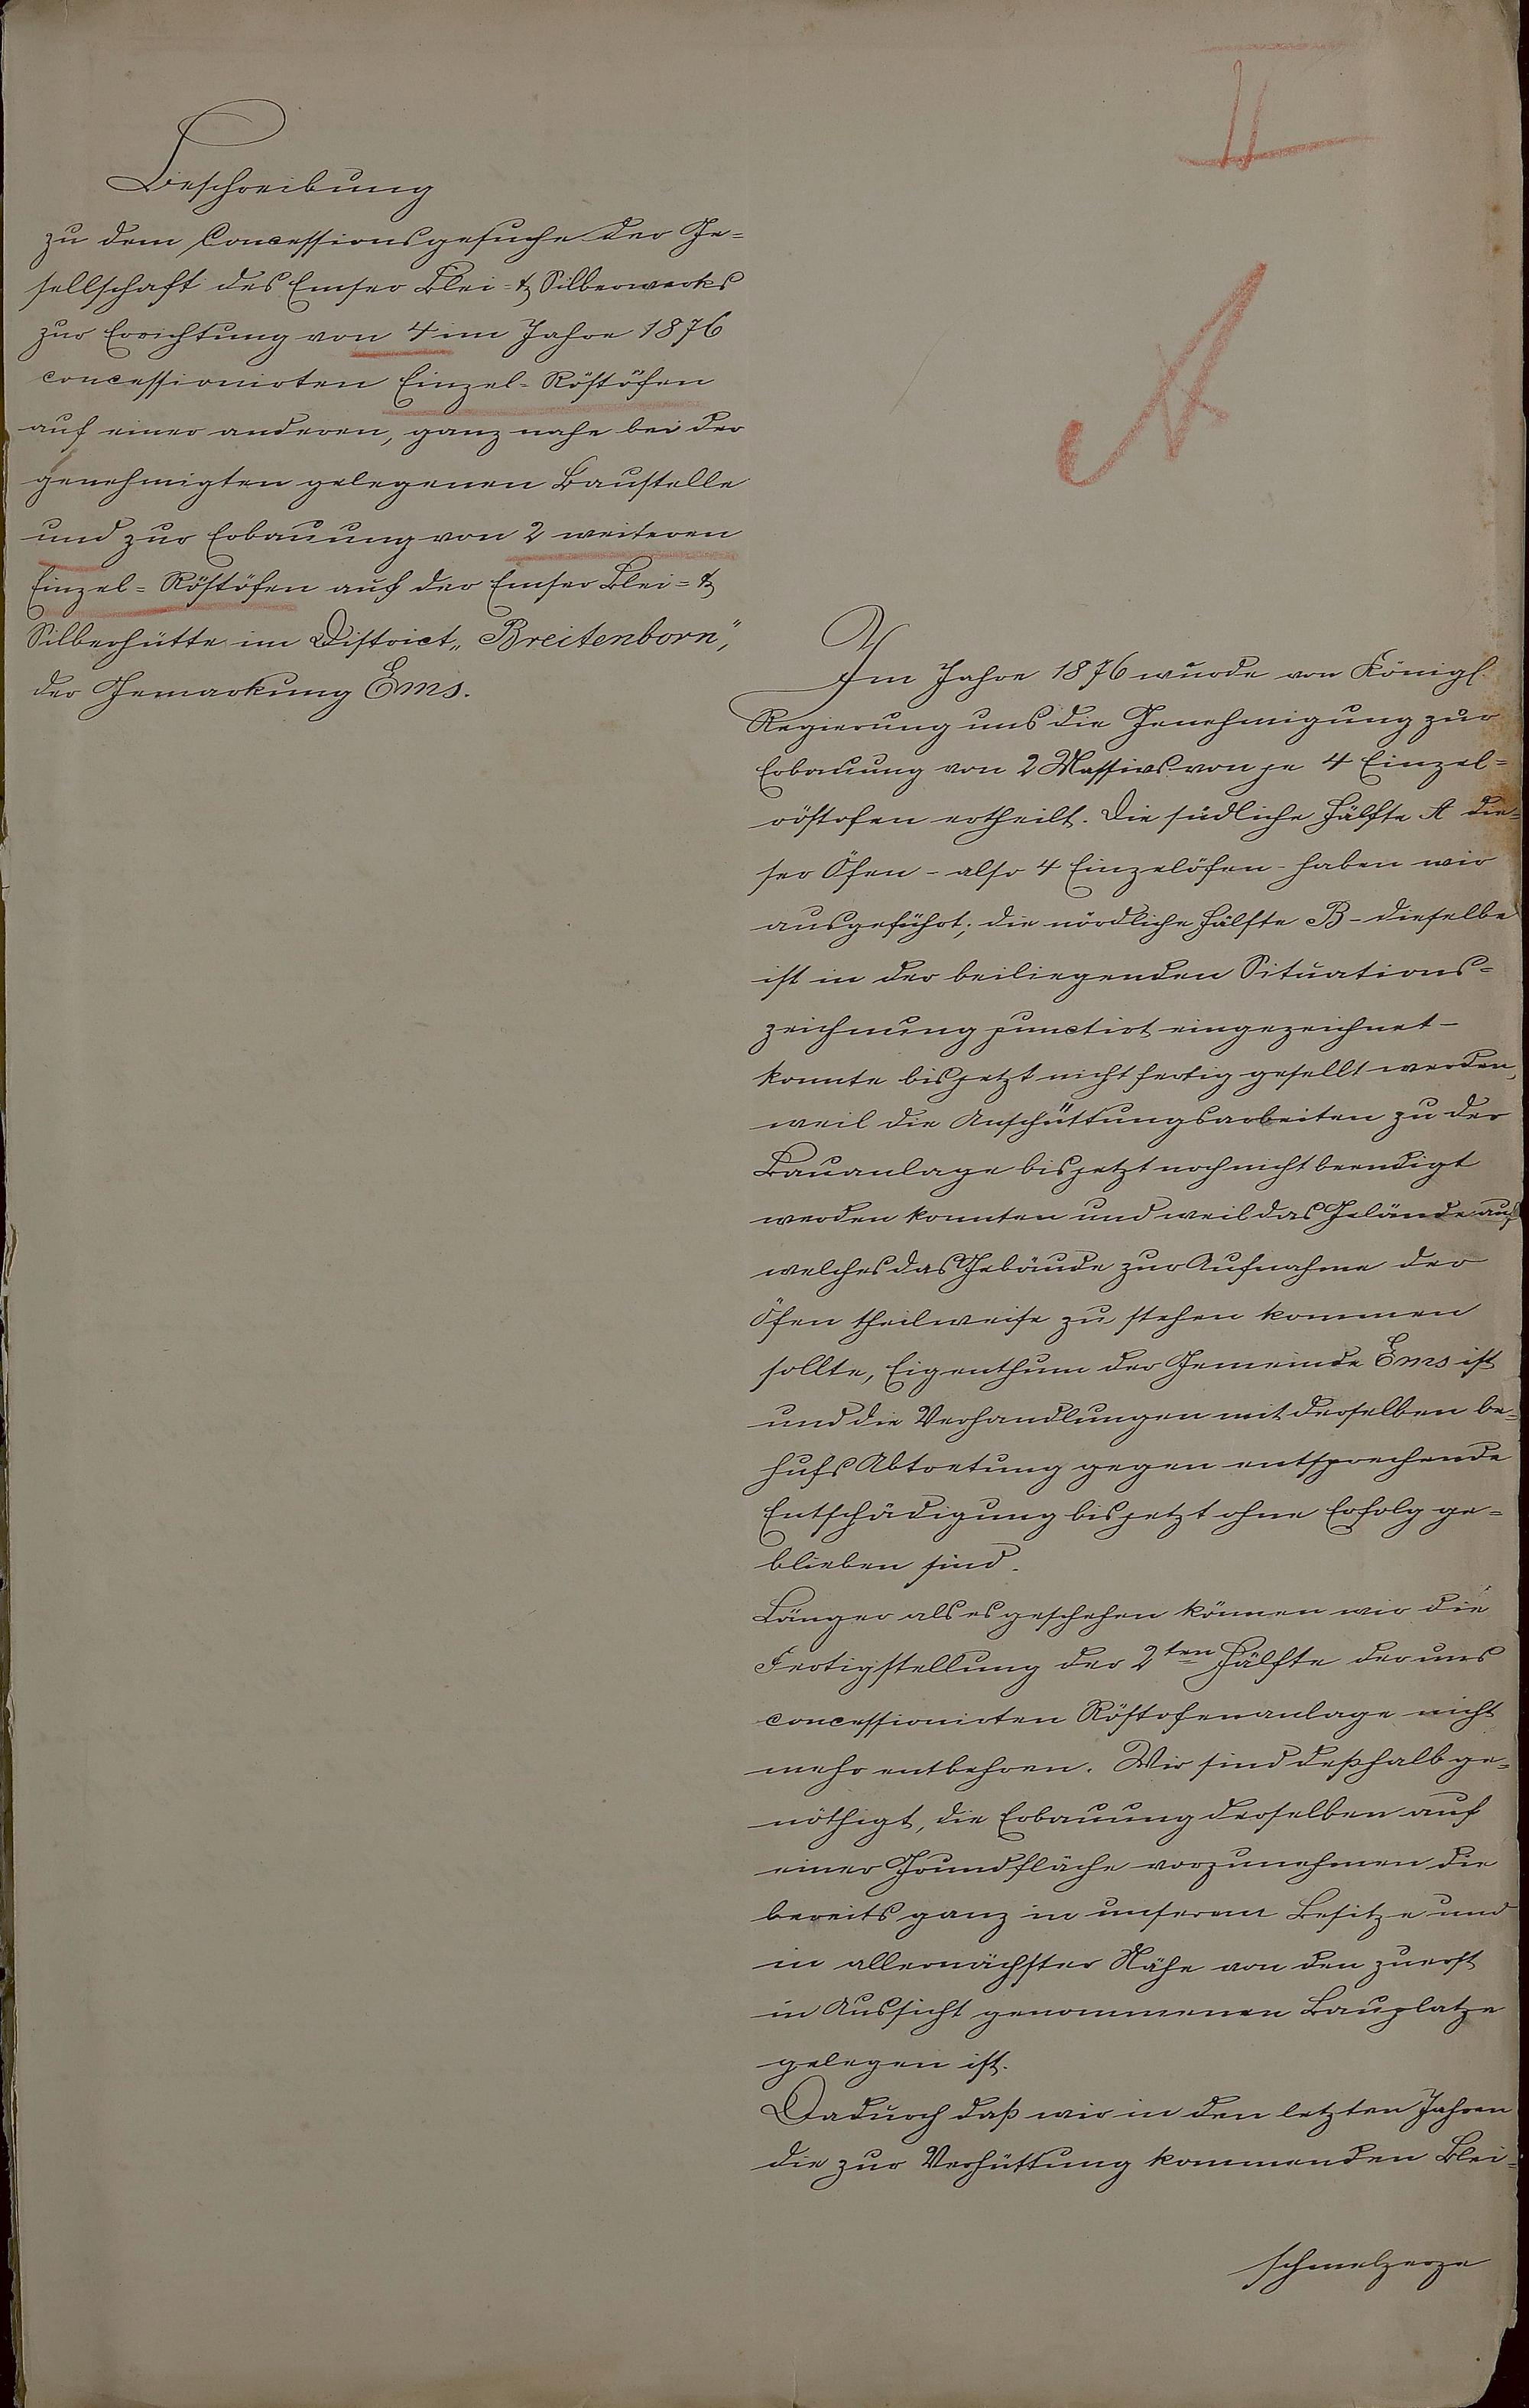 II
A
Beschreibung
zu dem Concessionsgesuche der Ge=
sellschaft des Emser Blei- & Silberwerks
zur Errichtung von 4 im Jahre 1876
concessionirten Einzel-Röstöfen
auf einer anderen, ganz nahe bei der
genehmigten gelegenen Baustelle
und zur Erbauung von 2 weiteren
Einzel=Röstöfen auf der Emser Blei=&
Silberhütte im District „Breitenborn",
der Gemarkung Ems.
Im Jahre 1876 wurde von Königl.
Regierung uns die Genehmigung zur
Erbauung von 2 Massivs von je 4 Einzel=
röstofen ertheilt. Die südliche Hälfte A die=
ser Öfen - also 4 Einzelöfen - haben wir
ausgeführt; die nördliche Hälfte B - dieselbe
ist in der beiliegenden Situations=
zeichnung punctirt eingezeichnet -
konnte bis jetzt nicht fertig gesellt werden,
weil die Anschüttungsarbeiten zu der
Bauanlage bis jetzt noch nicht beendigt
werden konnten und weil das Gelände auf
welches das Gebäude zur Aufnahme der
Öfen theilweise zu stehen kommen
sollte, Eigenthum der Gemeinde Ems ist
und die Verhandlungen mit derselben be=
hufs Abtretung gegen entsprechende
Entschädigung bis jetzt ohne Erfolg ge=
blieben sind.
Länger als es geschehen können wir die
Fertigstellung der 2ten Hälfte der uns
concessionirten Röstofenanlage nicht
mehr entbehren. Wir sind deßhalb ge=
nöthigt, die Erbauung derselben auf
einer Grundfläche vorzunehmen die
bereits ganz in unserem Besitze und
in allernächster Nähe von den zuerst
in Aussicht genommenen Bauplatze
gelegen ist.
Dadurch daß wir in den letzten Jahren
die zur Verhüttung kommenden Blei=
schmelzerze